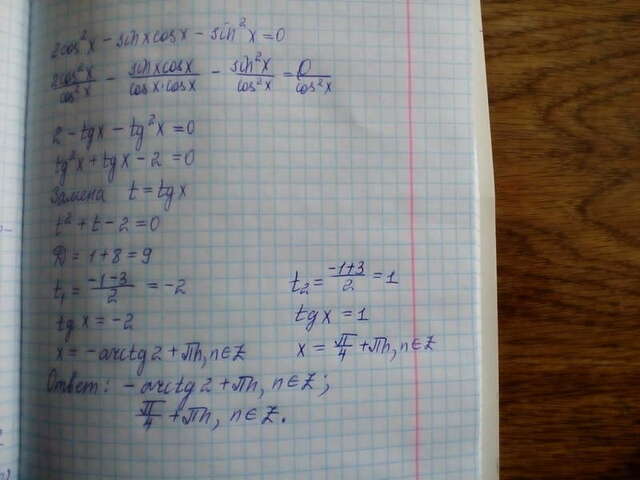 2cos²x - sinxcosx - sin²x = 0
2cos²x/cos²x - sinxcosx/cosx·cosx - sin²x/cos²x = 0/cos²x
2 - tgx - tg²x = 0
tg²x + tgx - 2 = 0
Замена t = tgx
t² + t - 2 = 0
D = 1 + 8 = 9
t₁ = (-1-3)/2 = -2 t₂ = (-1+3)/2 = 1
tg x = -2 tgx = 1
x = -arctg2 + πn, n∈Z x = π/4 + πn, n∈Z
Ответ: -arctg2 + πn, n∈Z;
π/4 + πn, n∈Z.